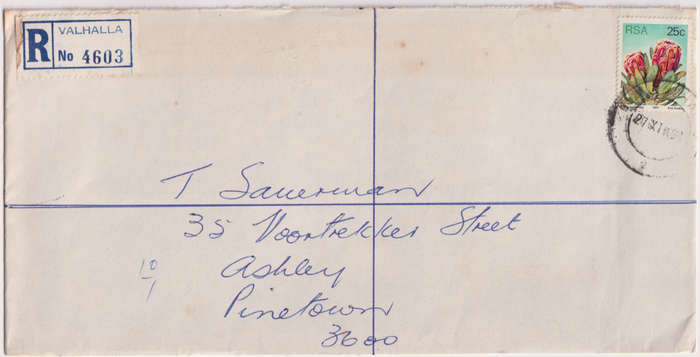 VALHALLA
R No 4603
RSA 25c
T Sauerman
35 Voortrekker Street
Ashley
Pinetown
3600
10
1